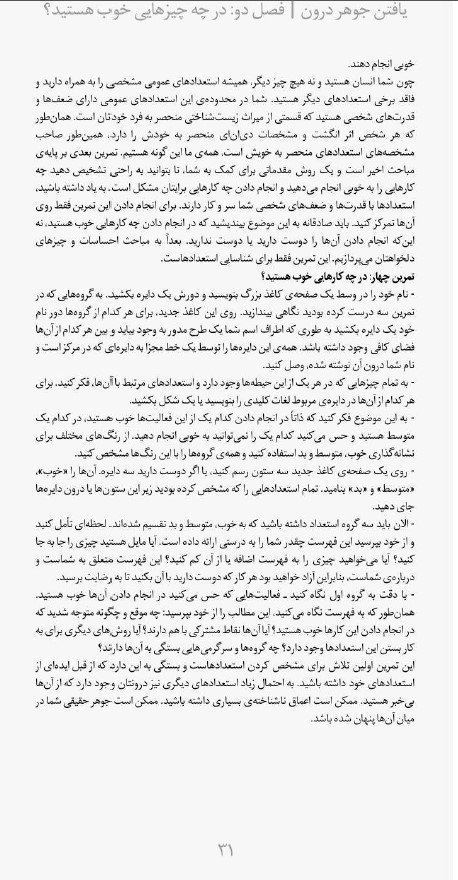 یافتن جوهر درون | فصل دو: در چه چیزهایی خوب هستید؟
خوبی انجام دهند.
چون شما انسان هستید و نه هیچ چیز دیگر، همیشه استعدادهای عمومی مشخصی را به همراه دارید و
فاقد برخی استعدادهای دیگر هستید. شما در محدوده‌ی این استعدادهای عمومی دارای ضعف‌ها و
قدرت‌های شخصی هستید که قسمتی از میراث زیست‌شناختی منحصر به فرد خودتان است. همان‌طور
که هر شخص اثر انگشت و مشخصات دی‌ان‌ای منحصر به خودش را دارد، همین‌طور صاحب
مشخصه‌های استعدادهای منحصر به خویش است. همه‌ی ما این گونه هستیم. تمرین بعدی بر پایه‌ی
مباحث اخیر است و یک روش مقدماتی برای کمک به شما، تا بتوانید به راحتی تشخیص دهید چه
کارهایی را به خوبی انجام می‌دهید و انجام دادن چه کارهایی برایتان مشکل است. به یاد داشته باشید،
استعدادها با قدرت‌ها و ضعف‌های شخصی شما سر و کار دارند. برای انجام دادن این تمرین فقط روی
آن‌ها تمرکز کنید. باید صادقانه به این موضوع بیندیشید که در انجام دادن چه کارهایی خوب هستید، نه
این‌که انجام دادن آن‌ها را دوست دارید یا دوست ندارید. بعداً به مباحث احساسات و چیزهای
دلخواهتان می‌پردازیم. این تمرین فقط برای شناسایی استعدادهاست.
تمرین چهار: در چه کارهایی خوب هستید؟
- نام خود را در وسط یک صفحه‌ی کاغذ بزرگ بنویسید و دورش یک دایره بکشید. به گروه‌هایی که در
تمرین سه درست کرده بودید نگاهی بیندازید. روی این کاغذ جدید، برای هر کدام از گروه‌ها دور نام
خود یک دایره بکشید به طوری که اطراف اسم شما یک طرح مدور به وجود بیاید و بین هر کدام از آن‌ها
فضای کافی وجود داشته باشد. همه‌ی این دایره‌ها را توسط یک خط مجزا به دایره‌ای که در مرکز است و
نام شما درون آن نوشته شده، وصل کنید.
- به تمام چیزهایی که در هر یک از این حیطه‌ها وجود دارد و استعدادهای مرتبط با آن‌ها، فکر کنید. برای
هر کدام از آن‌ها در دایره‌ی مربوط لغات کلیدی را بنویسید یا یک شکل بکشید.
- به این موضوع فکر کنید که ذاتاً در انجام دادن کدام یک از این فعالیت‌ها خوب هستید، در کدام یک
متوسط هستید و حس می‌کنید کدام یک را نمی‌توانید به خوبی انجام دهید. از رنگ‌های مختلف برای
نشانه‌گذاری خوب، متوسط و بد استفاده کنید و همه‌ی گروه‌ها را با این رنگ‌ها مشخص کنید.
- روی یک صفحه‌ی کاغذ جدید سه ستون رسم کنید، یا اگر دوست دارید سه دایره. آن‌ها را «خوب»،
«متوسط» و «بد» بنامید. تمام استعدادهایی را که مشخص کرده بودید زیر این ستون‌ها یا درون دایره‌ها
جای دهید.
- الان باید سه گروه استعداد داشته باشید که به خوب، متوسط و بد تقسیم شده‌اند. لحظه‌ای تأمل کنید
و از خود بپرسید این فهرست چقدر شما را به درستی ارائه داده است. آیا مایل هستید چیزی را جا به جا
کنید؟ آیا می‌خواهید چیزی را به فهرست اضافه یا از آن کم کنید؟ این فهرست متعلق به شماست و
درباره‌ی شماست، بنابراین آزاد خواهید بود هر کار که دوست دارید با آن بکنید تا به رضایت برسید.
- با دقت به گروه اول نگاه کنید ـ فعالیت‌هایی که حس می‌کنید در انجام دادن آن‌ها خوب هستید.
همان‌طور که به فهرست نگاه می‌کنید. این مطالب را از خود بپرسید: چه موقع و چگونه متوجه شدید که
در انجام دادن این کارها خوب هستید؟ آیا آن‌ها نقاط مشترکی با هم دارند؟ آیا روش‌های دیگری برای به
کار بستن این استعدادها وجود دارد؟ چه گروه‌ها و سرگرمی‌هایی بستگی به آن‌ها دارند؟
این تمرین اولین تلاش برای مشخص کردن استعدادهاست و بستگی به این دارد که از قبل ایده‌ای از
استعدادهای خود داشته باشید. به احتمال زیاد استعدادهای دیگری نیز درونتان وجود دارد که از آن‌ها
بی‌خبر هستید. ممکن است اعماق ناشناخته‌ی بسیاری داشته باشید. ممکن است جوهر حقیقی شما در
میان آن‌ها پنهان شده باشد.
۳۱